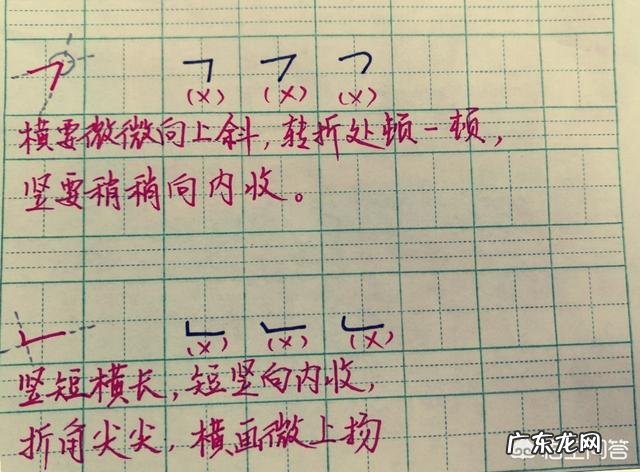 (×) (×) (×)
横要微微向上斜，转折处顿一顿，
竖要稍稍向内收。
(×) (×) (×)
竖短横长，短竖向内收，
折角尖尖，横画微上扬
广东龙网